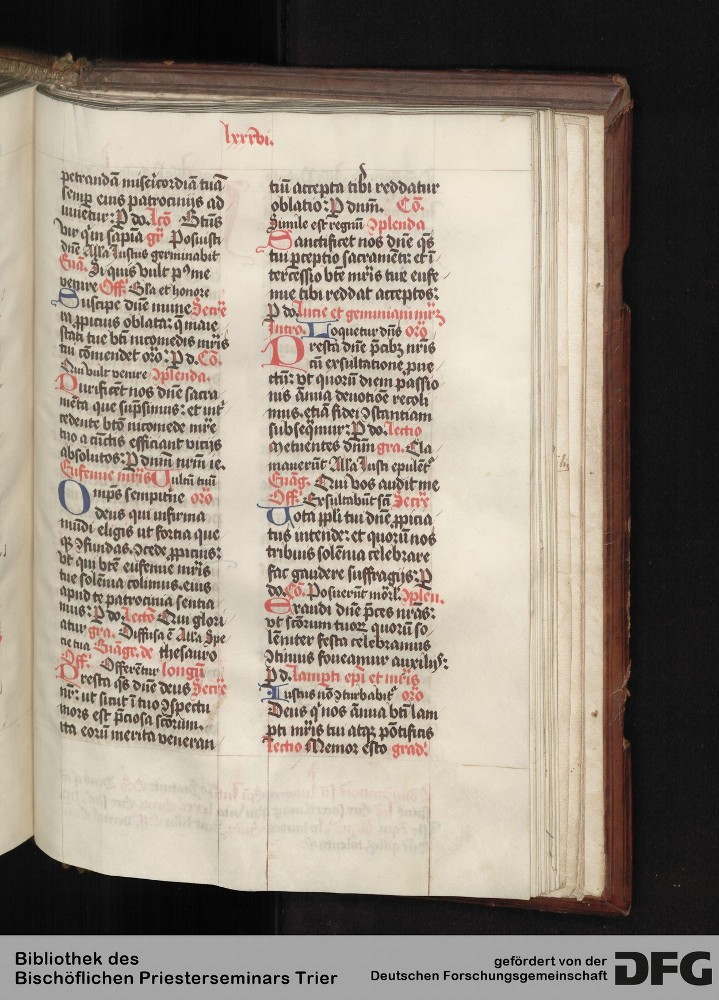 lxxxvi.
petrandā misericordiā tuā
semp eius patrocinijs ad
iuuetur: P do. Lcō Btūs
vir q in sapīa gr̄ Posuisti
dn̄e All'a Iustus germinabit
Euā. Si quis vult p' me
venire Off̄ Gl'a et honore
Suscipe dn̄e mune Secrē
ra ppicius oblata: q maie
stati tue bt̄i nicomedis mr̄is
tui cōmendet orō: P d. Cō.
Qui vult venire ꝯplenda.
Purificēt nos dn̄e sacra
mēta que sūpsimus: et int'
cedente bt̄o nicomede mr̄e
tuo a cūctis efficiant vicijs
absolutos: P dnm̄ nrm̄ ie.
Eufemie mr̄is Vultū tuū
Omp̄s sempit̄ne orō
deus qui infirma
mūdi eligis ut fortia que
q; ꝯfundas. ꝯcede ppicius:
vt qui bt̄e eufemie mr̄is
tue solēnia colimus. eius
apud te patrocinia sentia
mus: P do. Lectō Qui glori
atur gra. Diffusa ē All'a Spe
cie tua Euāge. de thesauro
Off̄. Offerētur longū
Presta q̄s dn̄e deus Secrē
nr̄: ut sicut ī tuo ꝯspectu
mors est p̄ciosa scōrum.
ita eorū merita veneran
tiū accepta tibi reddatur
oblatio: P dnm̄. Cō.
Simile est regnū ꝯplenda
Sanctificet nos dn̄e q̄s
tui pceptio sacramēti: et ī
tercessio bt̄e mr̄is tue eufe
mie tibi reddat acceptos:
P do. Lucie et geminiani mr̄z
Intro. Loquetur dn̄s orō
Presta dn̄e p̄cib; nr̄is
cū exsultatione pue
ctū: vt quorū diem passio
nis ānua deuotiōe recoli
mus. etiā fidei ꝯstantiam
subseq̄mur: P do. Lectio
Metuentes dnm̄ gra. Cla
mauerūt All'a Iusti epulēt'
Euāg. Qui vos audit me
Off̄. Exsultabūt sā Secrē
Vota ppl'i tui dn̄e ppicia
tus intende: et quorū nos
tribuis solēnia celebrare
fac gaudere suffragijs: P
do. Cō. Posuerūt mōrl. ꝯplen.
Exaudi dn̄e p̄ces nr̄as:
vt scōrum tuor; quorū so
lēniter festa celebramus
ꝯtinuis foueamur auxilijs:
P d. Lamp̄ti ep̄i et mr̄is
Iustus nō ꝯturbabit' orō
Deus q' nos ānua bt̄i lam
pti mr̄is tui atq; pōtificis
Lectio Memor esto grad'.
Bibliothek des
Bischöflichen Priesterseminars Trier
gefördert von der
Deutschen Forschungsgemeinschaft
DFG